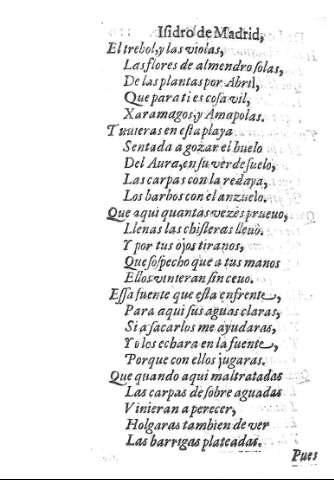 Isidro de Madrid,
El trebol, y las violas,
Las flores de almendro solas,
De las plantas por Abril,
Que para ti es cosa vil,
Xaramagos, y Amapolas.
Tuuieras en esta playa
Sentada a gozar el buelo
Del Aura, en su verde suelo,
Las carpas con la redaya,
Los barbos con el anzuelo.
Que aqui quantas vezes prueuo,
Llenas las chisteras lleuo.
Y por tus ojos tiranos,
Que sospecho que a tus manos
Ellos vinieran sin ceuo.
Essa fuente que esta enfrente,
Para aqui sus aguas claras,
Si a sacarlos me ayudaras,
Yo los echara en la fuente,
Porque con ellos jugaras.
Que quando aqui maltratadas
Las carpas de sobre aguadas
Vinieran a perecer,
Holgaras tambien de ver
Las barrigas plateadas.
Pues